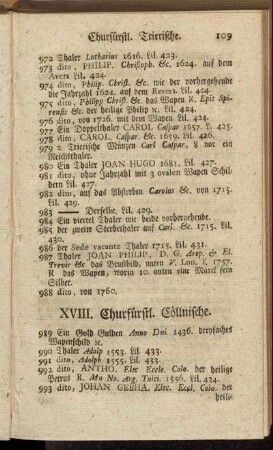 Churfürstl. Trierische. 109
972 Thaler Lotharius 1616. Lil. 423.
973 dito, PHILIP. Christoph. &c. 1624. auf dem
Avers Lil. 424.
974 dito, Philip. Christ. &c. wie der vorhergehende
die Jahrzahl 1624. auf dem Revers. Lil. 424.
975 dito, Philipp Christ. &c. das Wapen R. Epis Spi-
rensis &c. der heilige Philip ꝛc. Lil. 424.
976 dito, von 1726. mit dem Wapen Lil. 424.
977 Ein Doppelthaler CAROL. Caspar 1657. L. 425.
978 dito, CAROL. Caspar. &c. 1659. Lil. 426.
979 2 Trierische Münzen Carl Caspar, 8 vor ein
Reichsthaler.
980 Ein Thaler JOAN HUGO 1681. Lil. 427.
981 dito, ohne Jahrzahl mit 3 ovalen Wapen Schil-
dern Lil. 427.
982 dito, auf das Absterben Carolus &c. von 1715.
Lil. 429.
983 —— Derselbe, Lil. 429.
984 Ein viertel Thaler wie beide vorhergehende.
985 der zweite Sterbethaler auf Carl. &c. 1715. Lil.
430.
986 der Sede vacantz Thaler 1715. Lil. 431.
987 Thaler JOAN PHILIP., D. G. Arep. & El.
Trevir &c das Brustbild, unten V. Lon. f. 1757.
R das Wapen, worin 10. unten eine Marck fein
Silber.
988 dito, von 1760.
XVIII. Churfürstl. Cöllnische.
989 Ein Gold Gulden Anno Dni 1436. dreyfaches
Wapenschild ꝛc.
990 Thaler Adolp 1553. Lil. 433.
991 dito, Adolph 1555. Lil. 433.
992 dito, ANTHO. Elec Eccle. Colo. der heilige
Petrus R. Mo No. Arg. Tuici. 1556. Lil. 434.
993 dito, JOHAN GEBHA. Elec. Eccl. Colo. der
heili-